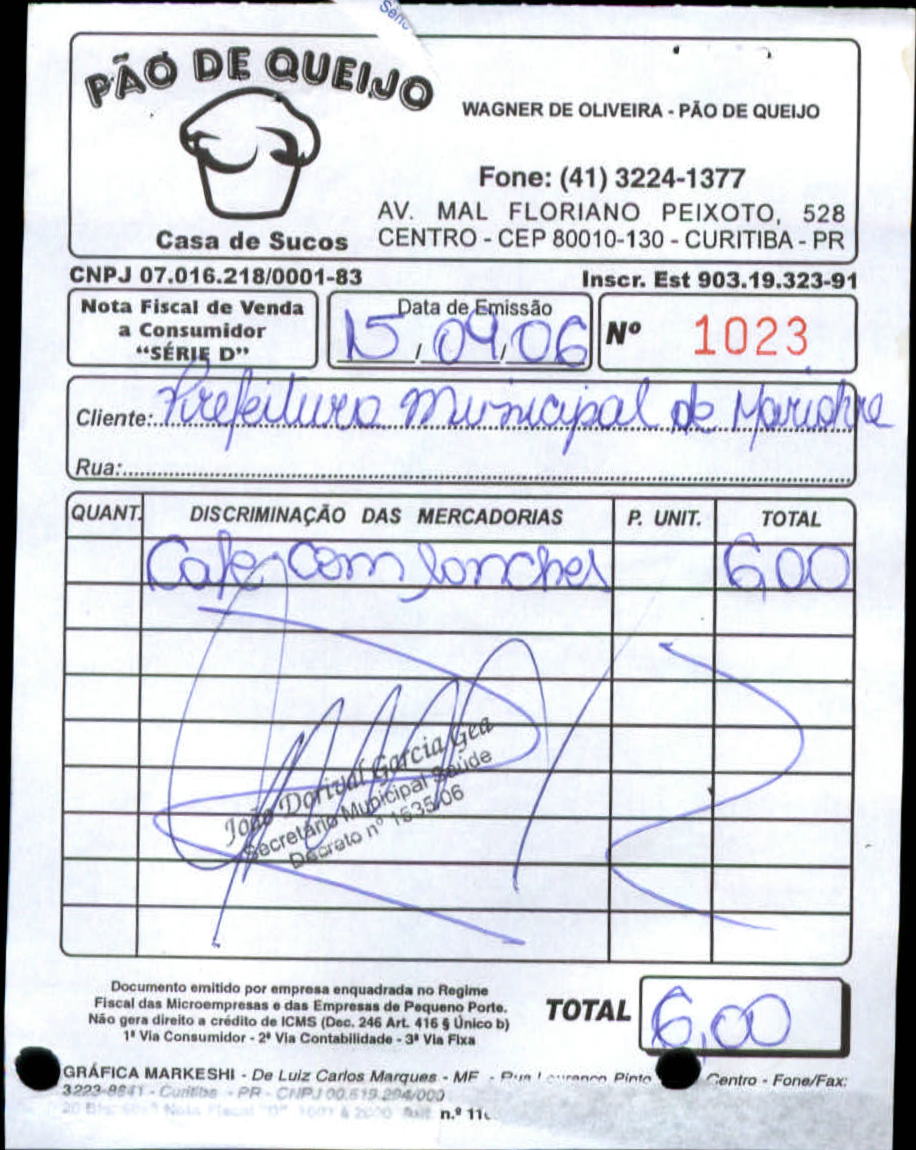 PÃO DE QUEIJO
Casa de Sucos
WAGNER DE OLIVEIRA - PÃO DE QUEIJO
Fone: (41) 3224-1377
AV. MAL FLORIANO PEIXOTO, 528
CENTRO - CEP 80010-130 - CURITIBA - PR
CNPJ 07.016.218/0001-83 Inscr. Est 903.19.323-91
Nota Fiscal de Venda
a Consumidor
"SÉRIE D"
Data de Emissão
15/09/06
Nº 1023
Cliente: Prefeitura Municipal de
Rua:
QUANT. DISCRIMINAÇÃO DAS MERCADORIAS P. UNIT. TOTAL
Cafe com lanches 6,00
João Dorival Garcia Gea
Secretário Municipal Saúde
Decreto nº 1535/06
Documento emitido por empresa enquadrada no Regime
Fiscal das Microempresas e das Empresas de Pequeno Porte.
Não gera direito a crédito de ICMS (Dec. 246 Art. 416 § Único b)
1ª Via Consumidor - 2ª Via Contabilidade - 3ª Via Fixa
TOTAL 6,00
GRÁFICA MARKESHI - De Luiz Carlos Marques - ME - Rua Lourenço Pinto Centro - Fone/Fax:
3223-8841 - Curitiba - PR - CNPJ 00.619.294/000
n.º 11